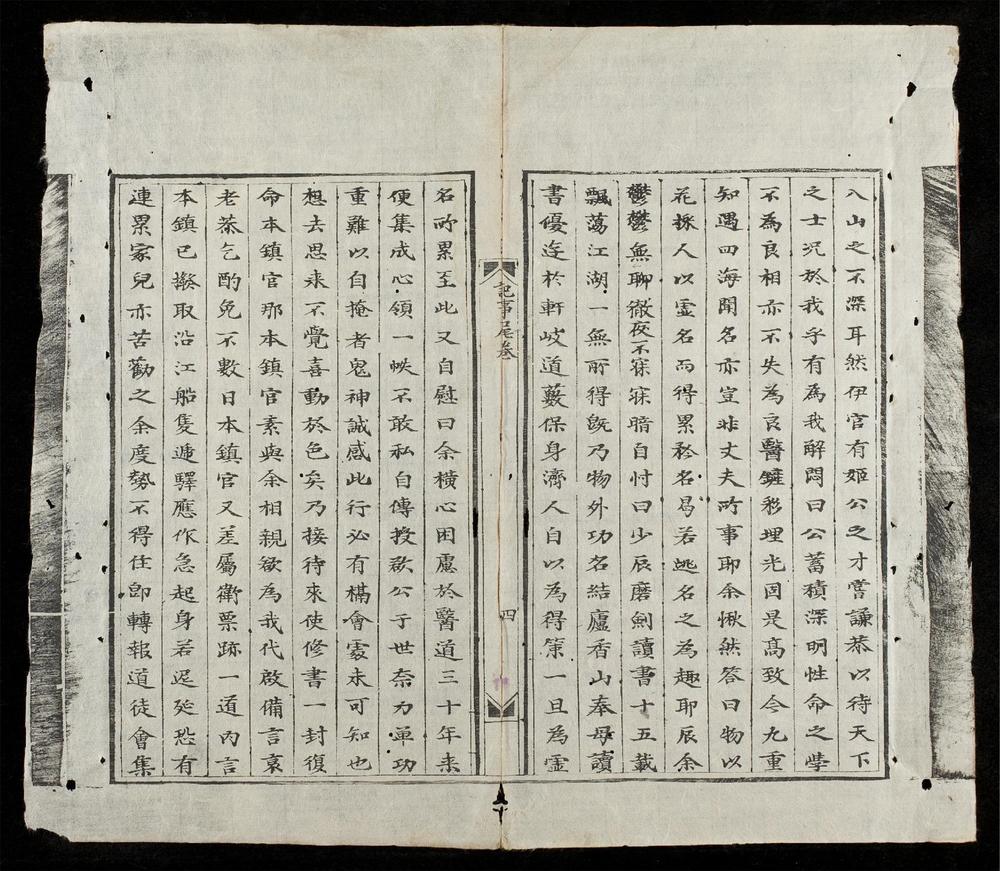 入山之不深耳然伊官有姬公之才嘗謙恭以待天下
之士况於我乎有為我解悶曰公蓄積深明性命之學
不為良相亦不失為良醫韞彩埋光固是髙致今九重
知遇四海聞名亦豈非丈夫所事耶余愀然答曰物以
花採人以虚名而得累矜名曷若逃名之為趣耶辰余
鬱鬱無聊徹夜不寐寐暗自忖曰少辰磨劍讀書十五載
飄蕩江湖一無所得旣乃物外功名結廬香山奉母讀
書優逰於軒岐道藪保身濟人自以為得策一旦為虚
記事尾卷
四
名所累至此又自慰曰余横心困慮於醫道三十年来
便集成心領一帙不敢私自傳授欲公于世奈力單功
重難以自掩者鬼神誠感此行必有機會處未可知也
想去思来不覺喜動於色矣乃接待來使修書一封復
命本鎮官那本鎮官素與余相親欲為我代啟備言衰
老恭乞酌免不數日本鎮官又差屬衛票跡一道內言
本鎮已撥取沿江船隻遞驛應作急起身若迟延恐有
連累家兒亦苦勸之余度勢不得住即轉報道徒會集